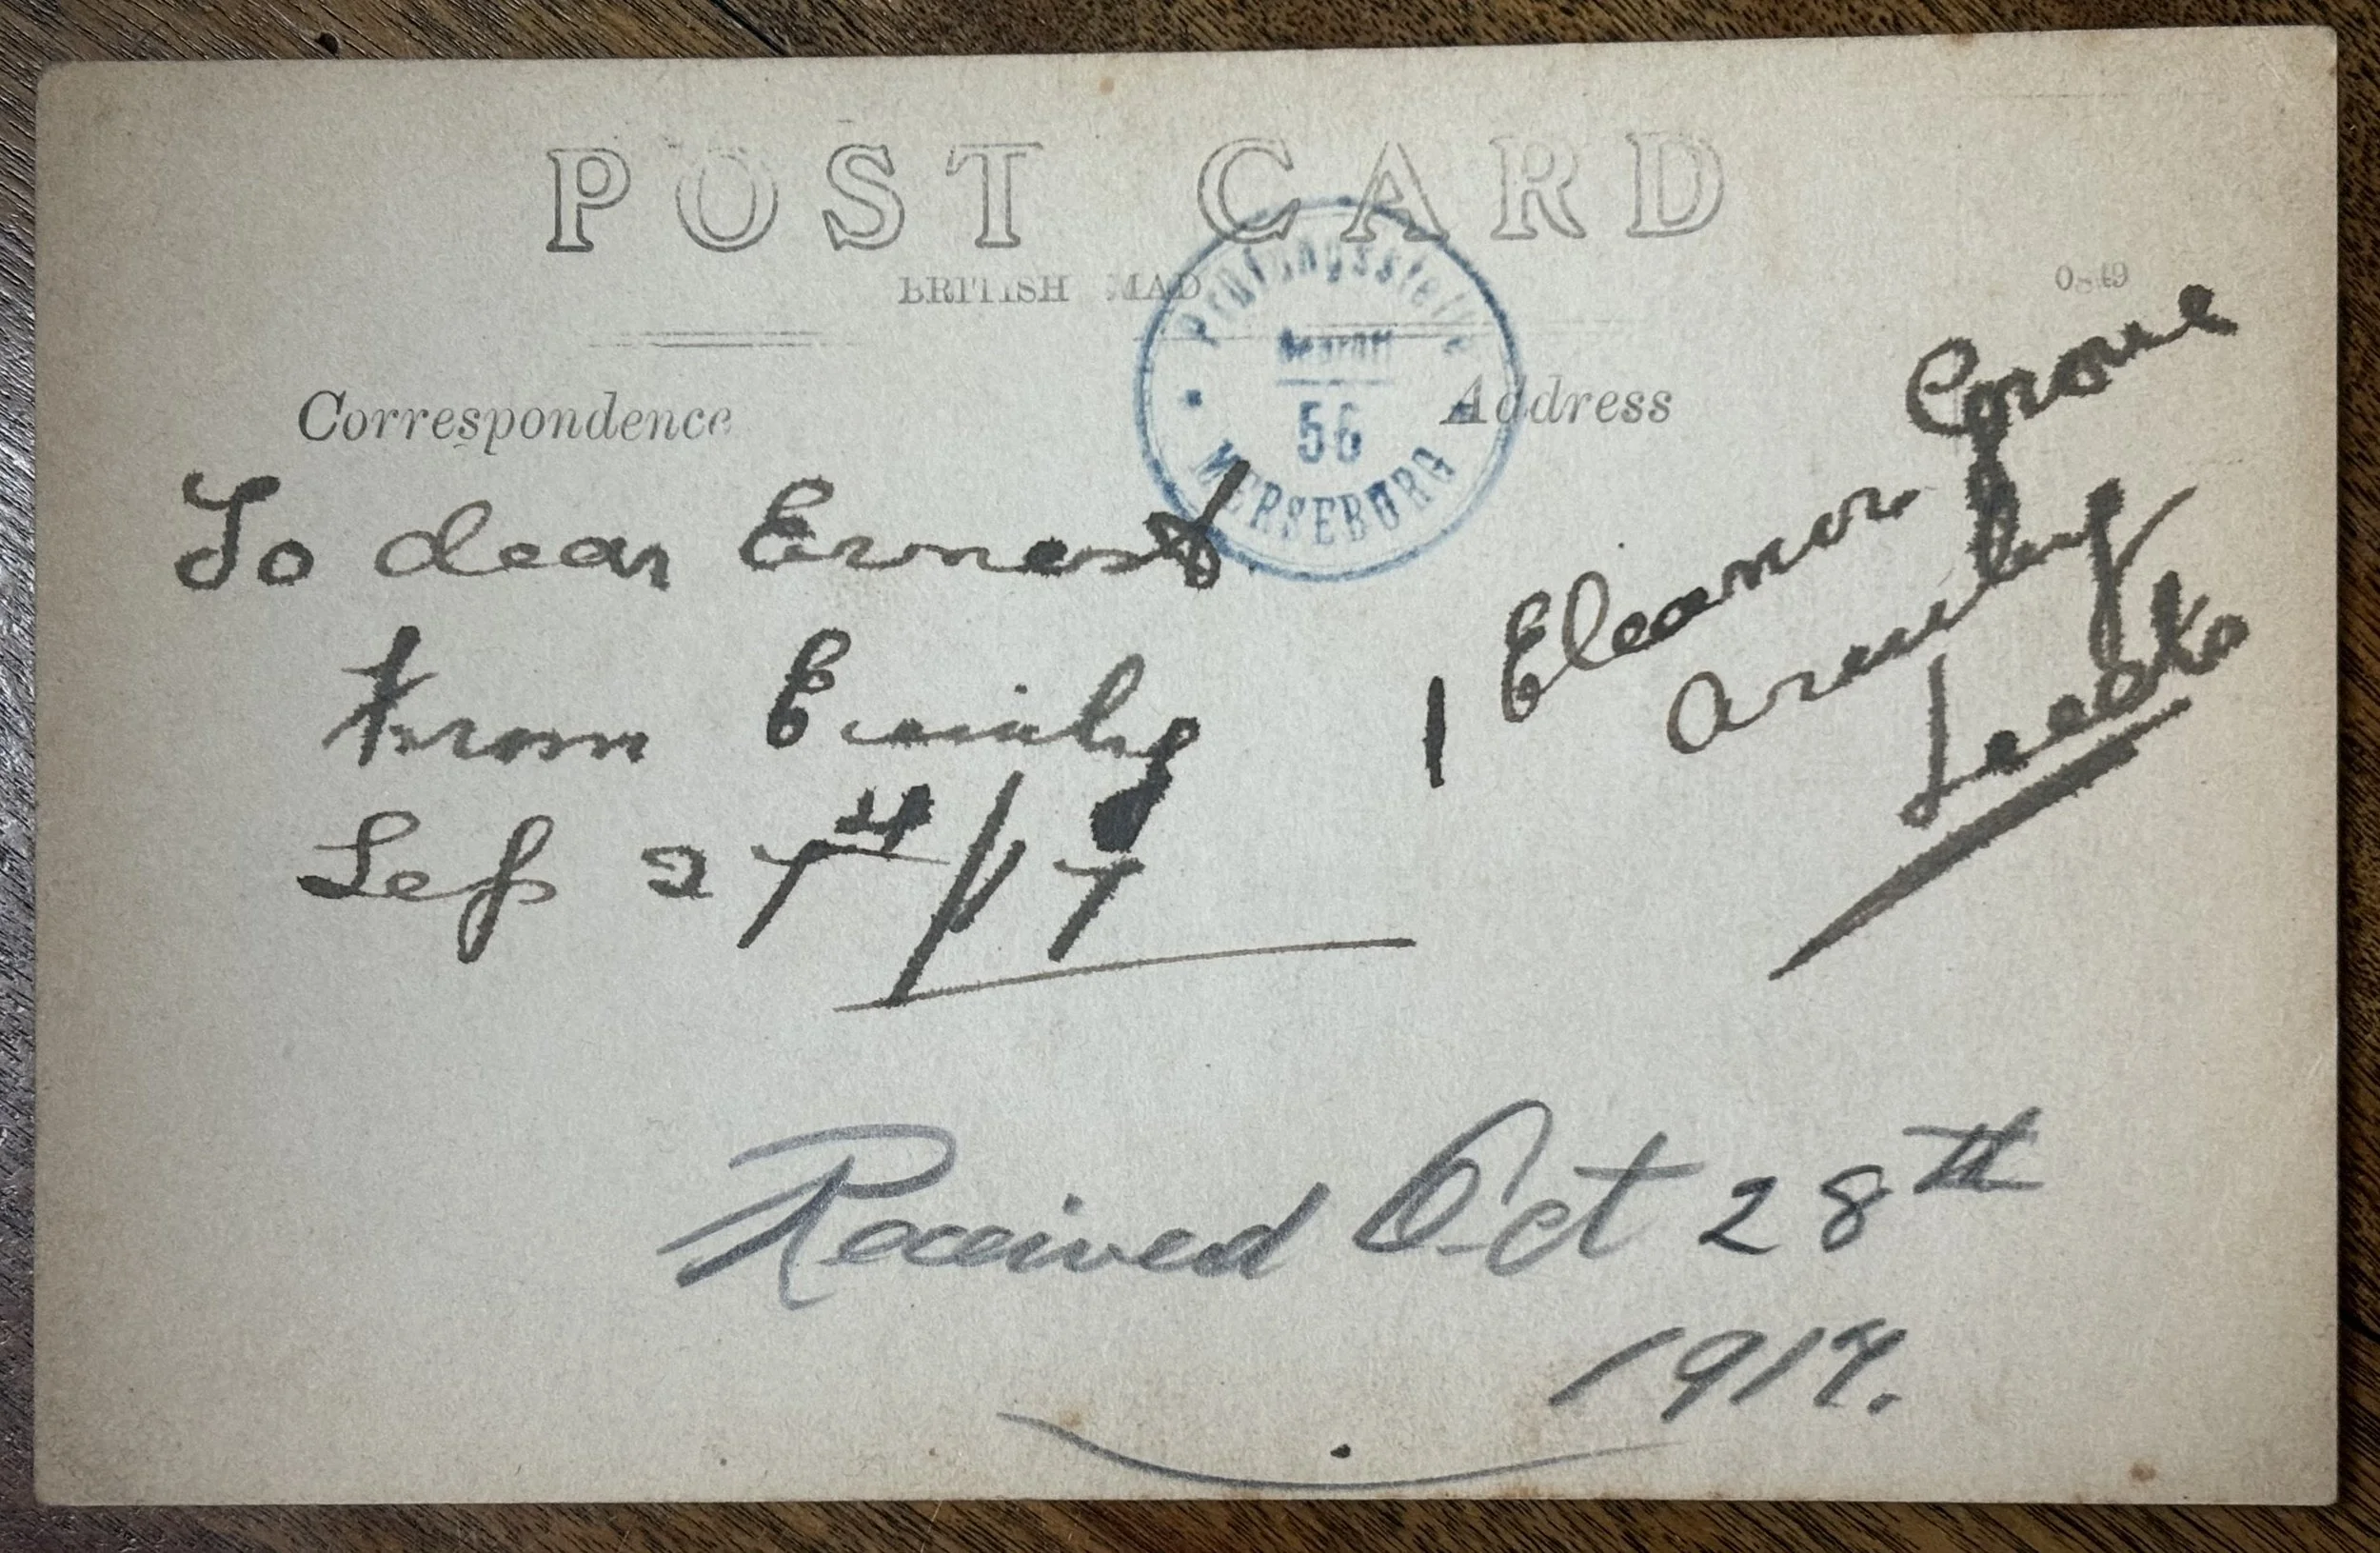 POST CARD
BRITISH MAD
Correspondence
Address
Prüfungsstelle
Geprüft
56
MERSEBURG
To dear Ernest
from Emily
Sep 27th/17
1 Eleanor Grove
Armley
Leeds
Received Oct 28th
1917.